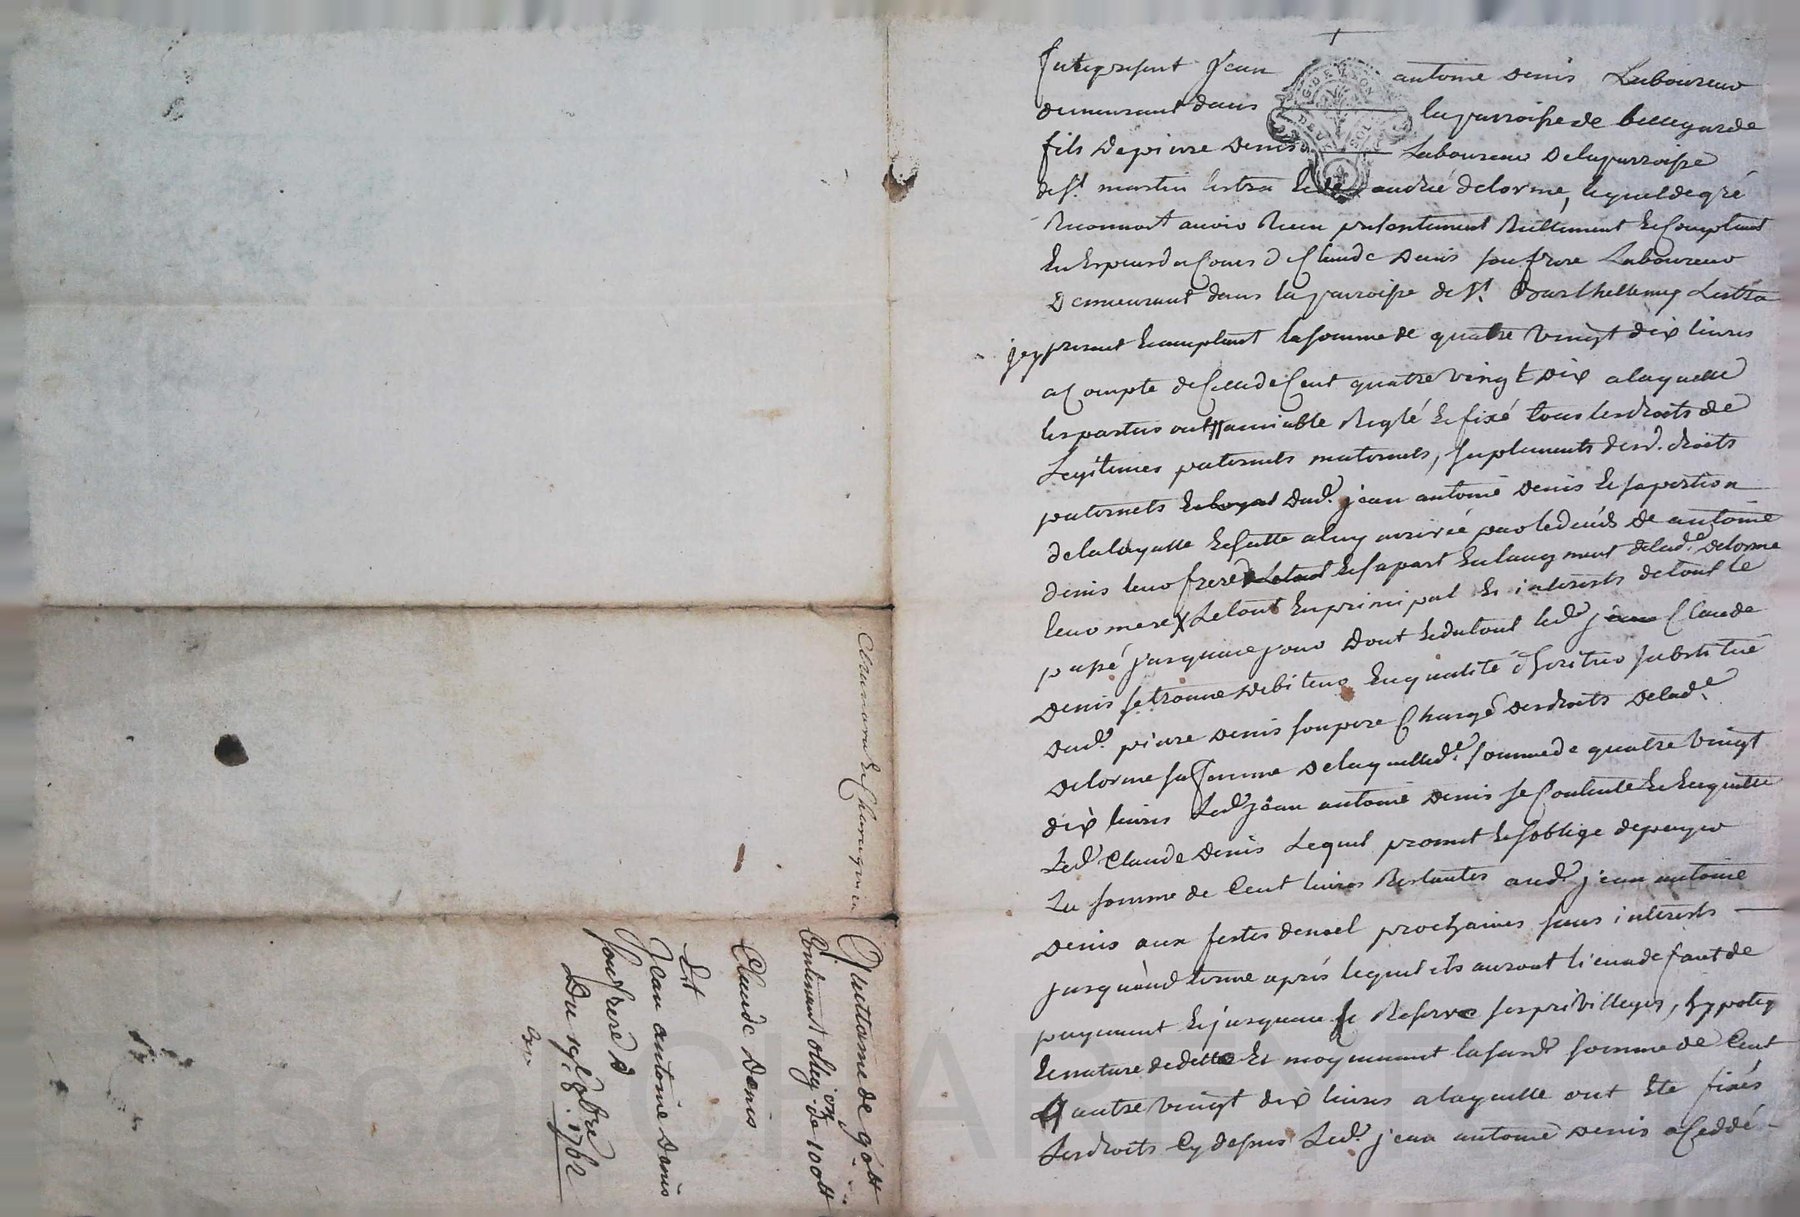 fut présent Jean antoine denis Laboureur
demeurant dans la parroisse de bellegarde
fils de pierre denis Laboureur de la parroisse
de st. martin lestra et de andrée delorme, lequel de gré
Reconnoit avoir Receu présentement Réellement et Comptant
en Espèces de Cours de Claude denis son frere Laboureur
Demeurant dans la parroisse de st. Barthellemy Lestra
icy present et acceptant la somme de quatre vingt dix livres
a Compte de Celle de Cent quatre vingt dix a laquelle
les parties ont amiable Reglé et fixé tous les droits de
Legitimes paternels maternels, suplements desd. droits
paternels dud. jean antoine denis et sa portion
de la laquelle Escutte a luy arrivée par le décéds de antoine
denis leur frere et sa part en l'augment de lad. delorme
leur mere X Le tout en principal et interests de tout le
passé jusqua ce jour Dont et du tout led. Claude
Denis se trouve debiteur en qualité d'heritier substitué
dud. pierre denis son pere Chargé des droits de lad.
delorme sa femme de laquelle d. somme de quatre vingt
dix livres Led. jean antoine denis se Contente et en quitte
Led. Claude denis Lequel promet et s'oblige de payer
La somme de Cent livres Restantes aud. jean antoine
Denis aux festes de noel prochaines sans interests
jusqu'aud. terme après lequel ils auront lieu a defaut de
payement et jusqu'a ce se Reserve ses privilleges, hypoteq
et nature de dette Et moyennant la susd. somme de Cent
quatre vingt dix livres a laquelle ont été fixés
les droits Cy dessus Led. jean antoine denis a Ceddé
Quittance de 90 tt
Contenant oblig.on de 100 tt
Claude Denis
Et
Jean antoine Denis
son frere
Du 19e. 8bre 1762
CHARENTRY